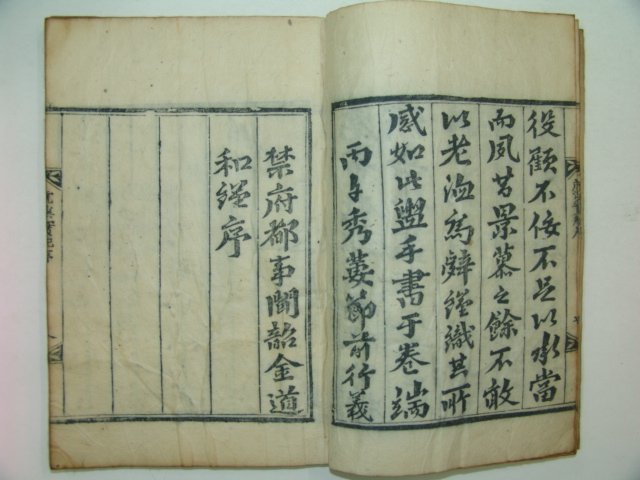 役顧不佞不足以承當
而夙昔景慕之餘不敢
以老洫爲辭謹識其所
感如此盥手書于卷端
丙子秀葽節前行義
禁府都事聞韶金道
和謹序